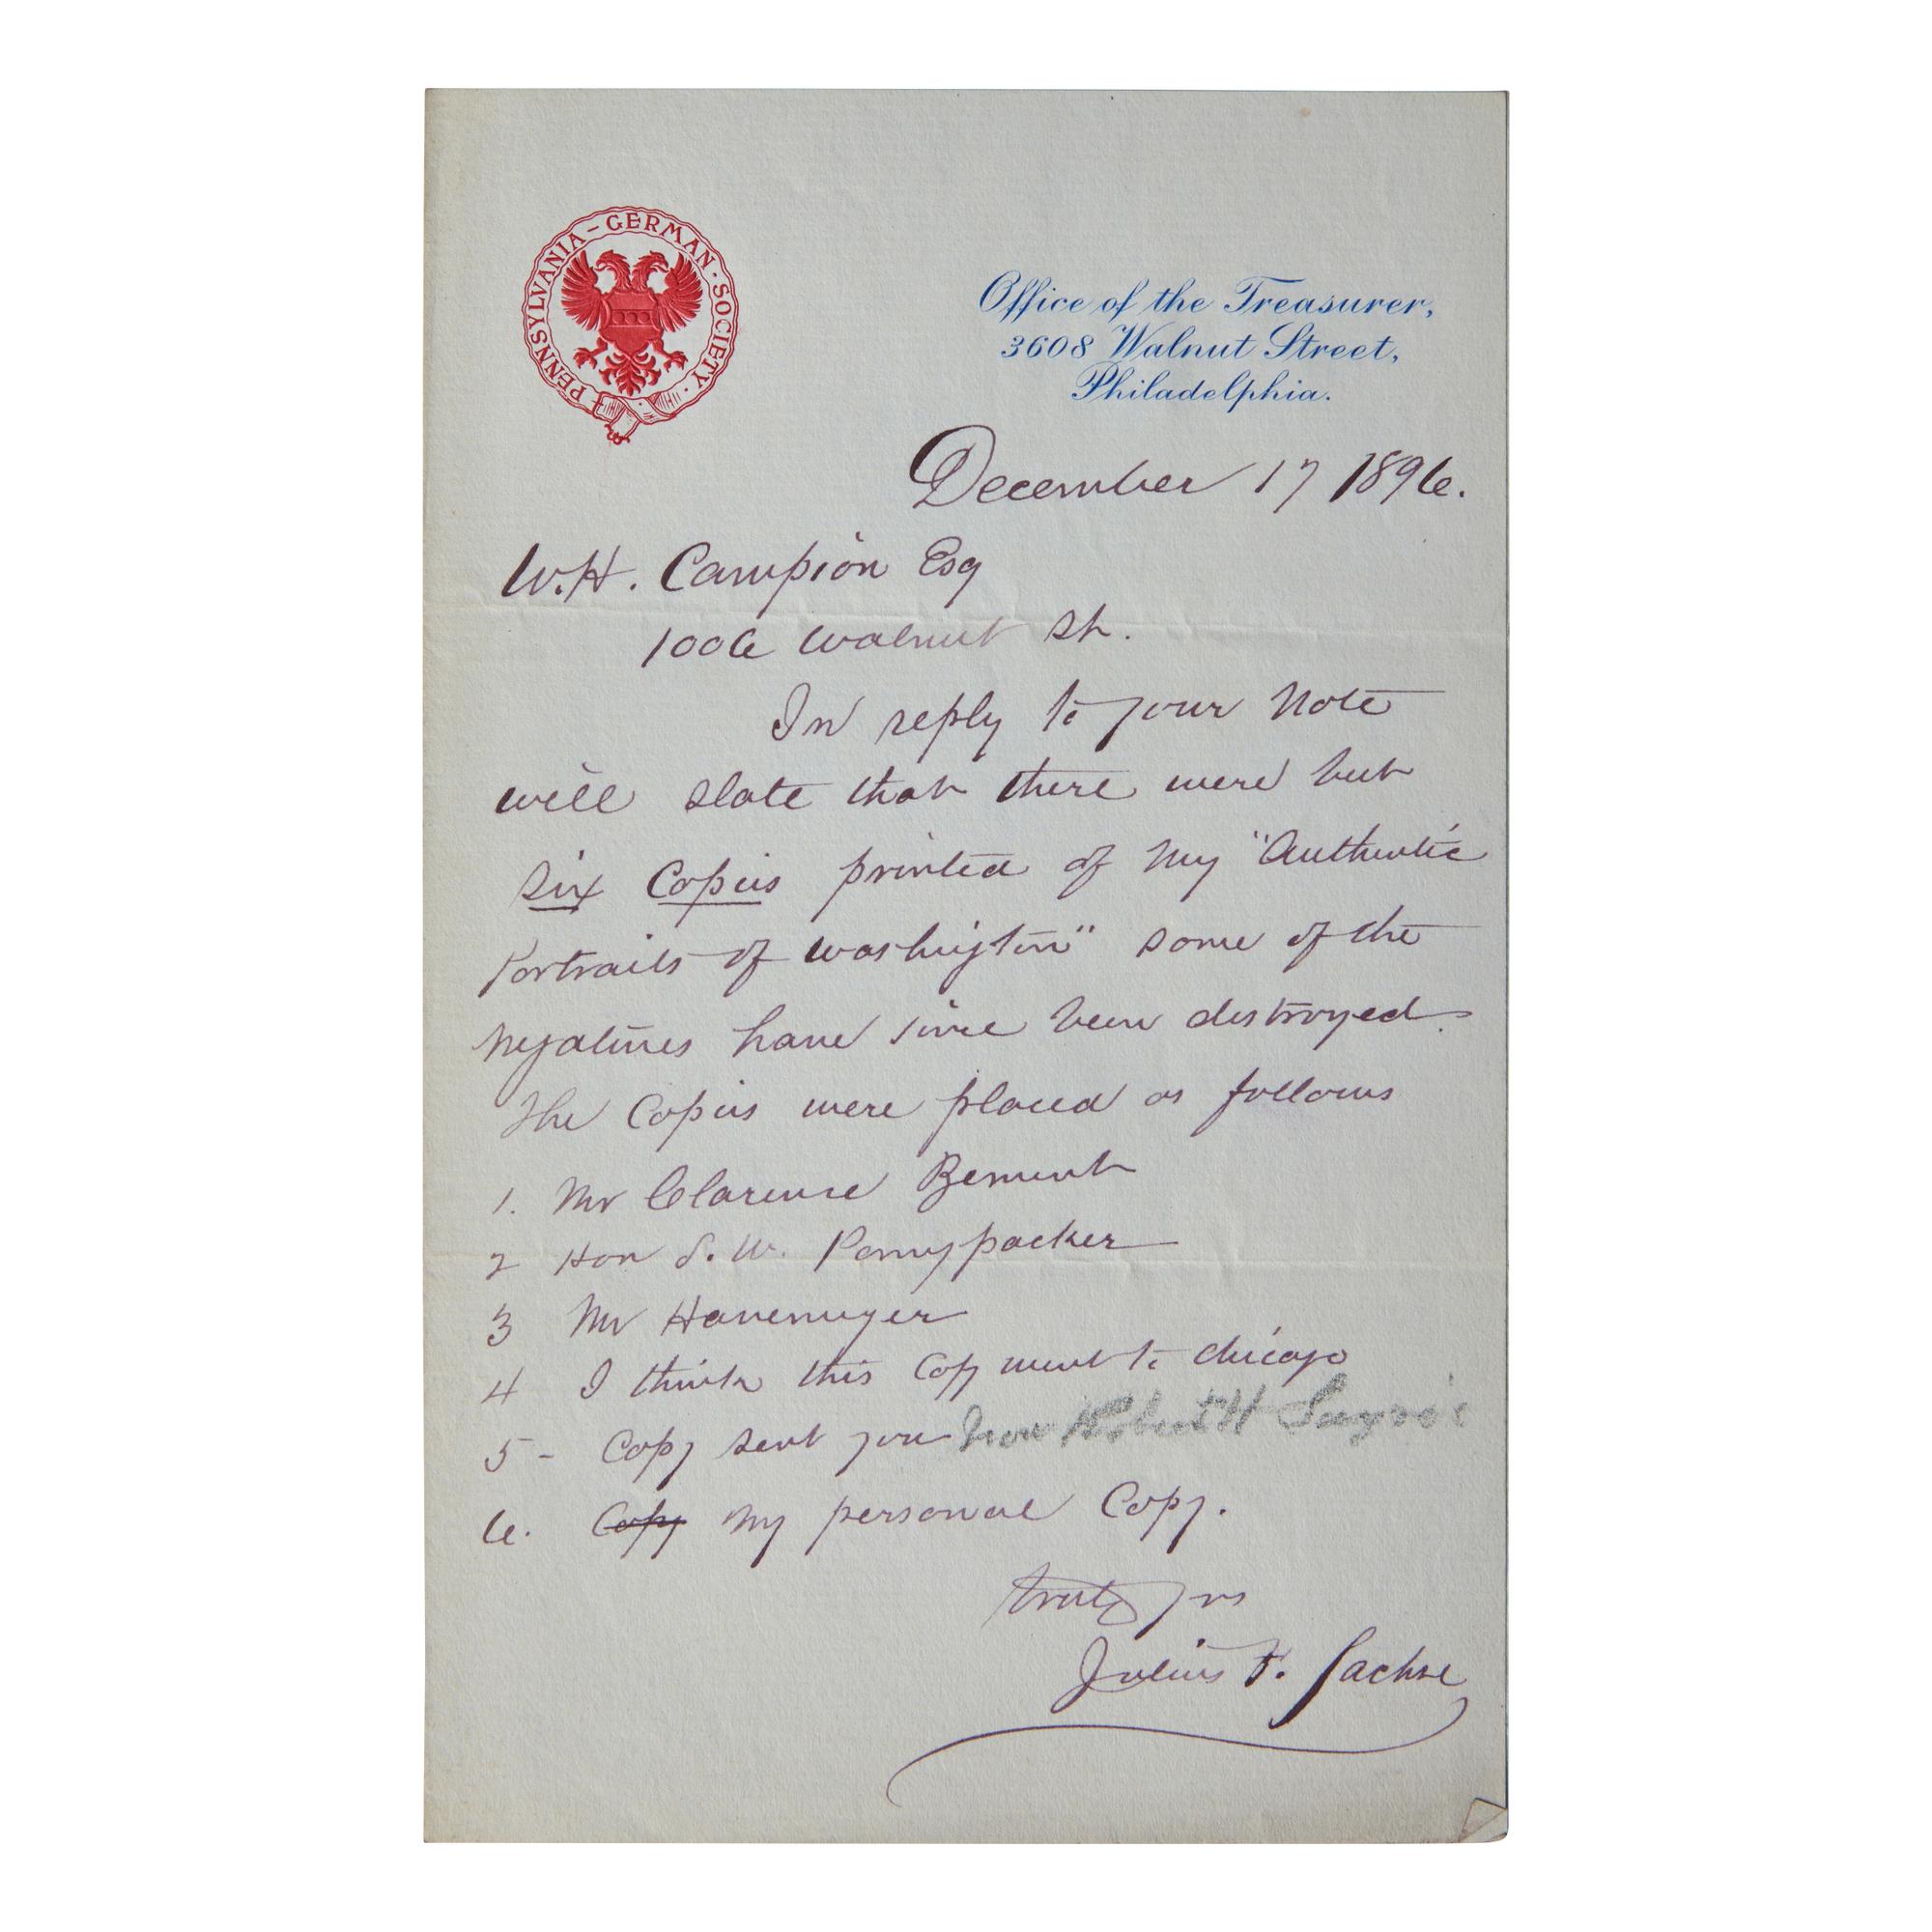 PENNSYLVANIA-GERMAN · SOCIETY ·
Office of the Treasurer,
3608 Walnut Street,
Philadelphia.
December 17 1896.
W.H. Campion Esq
1006 Walnut St.
In reply to your note
will state that there were but
six Copies printed of my "Authentic
Portraits of Washington" some of the
negatives have since been destroyed.
The Copies were placed as follows
1. Mr Clarence Bement
2 Hon S. W. Pennypacker
3 Mr Havemeyer
4 I think this Copy went to Chicago
5 - Copy sent you now Robert H Sayre's
6. Copy My personal Copy.
truly yrs
Julius F. Sachse